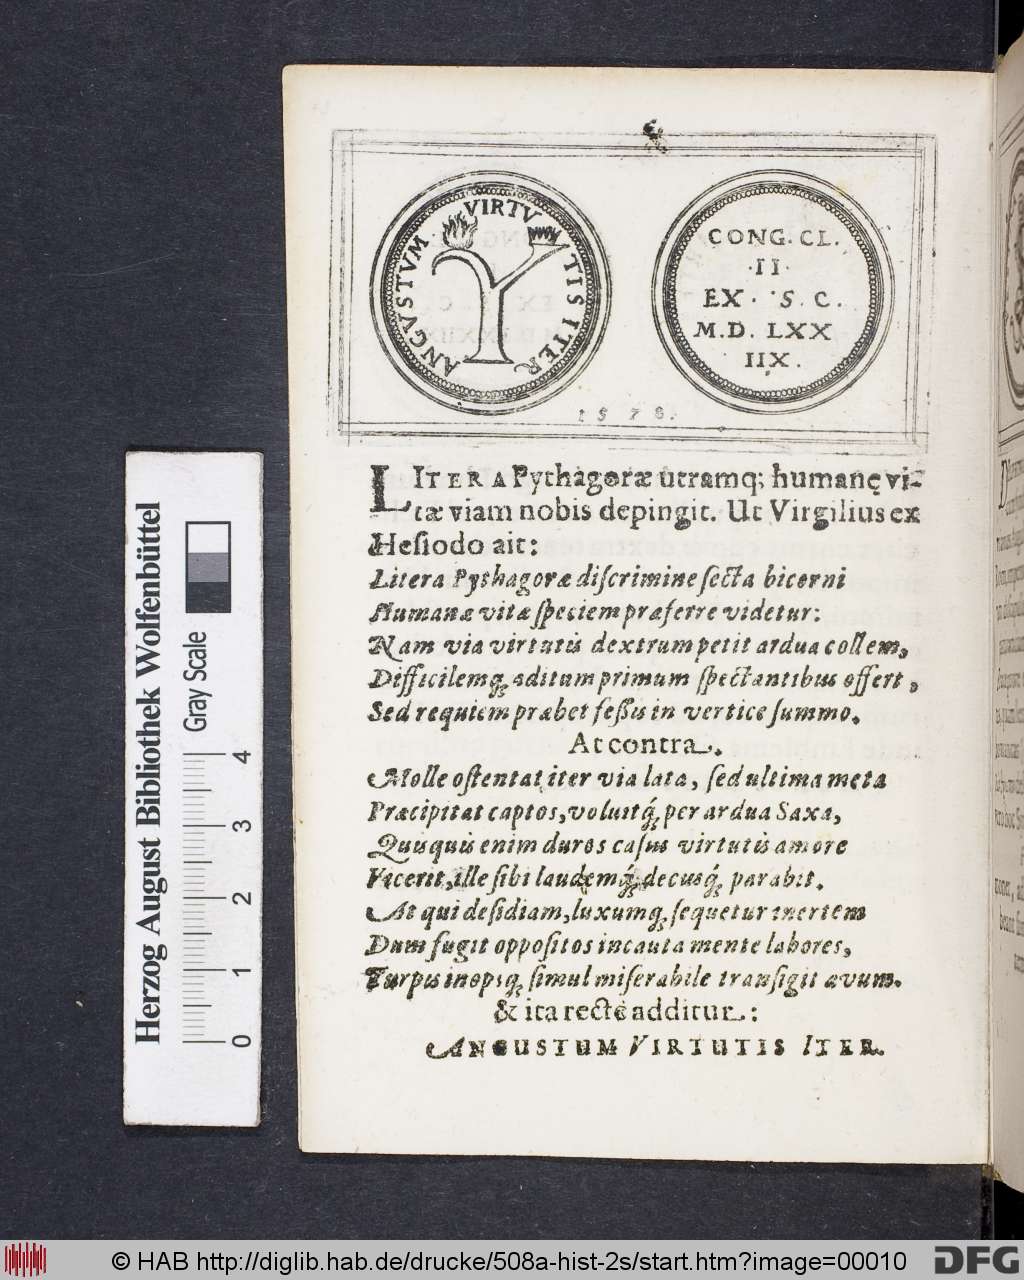 ANGVSTVM VIRTVTIS ITER
CONG. CL.
·II·
EX· ·S·C.
M.D. LXX
IIX.
1578.
LITERA Pythagoræ utramq; humanę vi-
tæ viam nobis depingit. Ut Virgilius ex
Hesiodo ait:
Litera Pythagoræ discrimine secta bicorni
Humanæ vitæ speciem præferre videtur:
Nam via virtutis dextrum petit ardua collem,
Difficilemq; aditum primum spectantibus offert,
Sed requiem præbet fessis in vertice summo.
At contra.
Molle ostentat iter via lata, sed ultima meta
Præcipitat captos, voluitq́; per ardua Saxa,
Quisquis enim duros casus virtutis amore
Vicerit, ille sibi laudemq́; decusq́; parabit.
At qui desidiam, luxumq; sequetur inertem
Dum fugit oppositos incauta mente labores,
Turpis inopsq; simul miserabile transigit ævum.
& ita recte additur:
ANGUSTUM VIRTUTIS ITER.
Herzog August Bibliothek Wolfenbüttel
Gray Scale
0 1 2 3 4
© HAB http://diglib.hab.de/drucke/508a-hist-2s/start.htm?image=00010
DFG